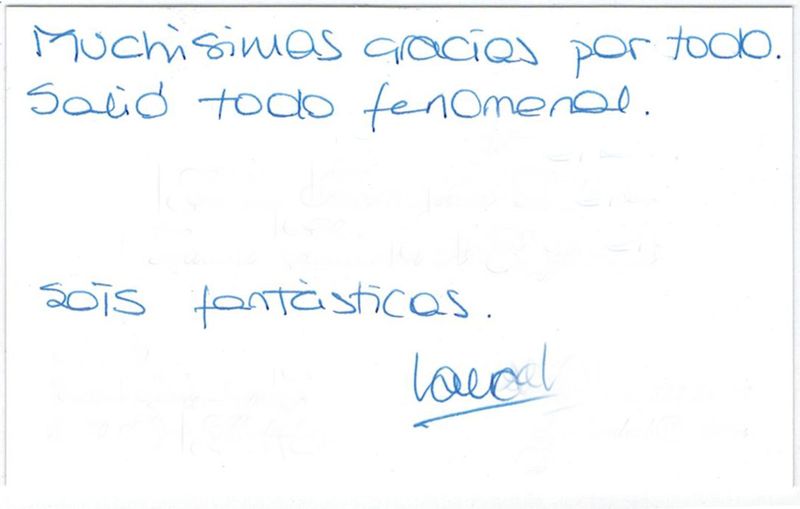 Muchisimas gracias por todo.
Salió todo fenomenal.
Sois fantásticas.